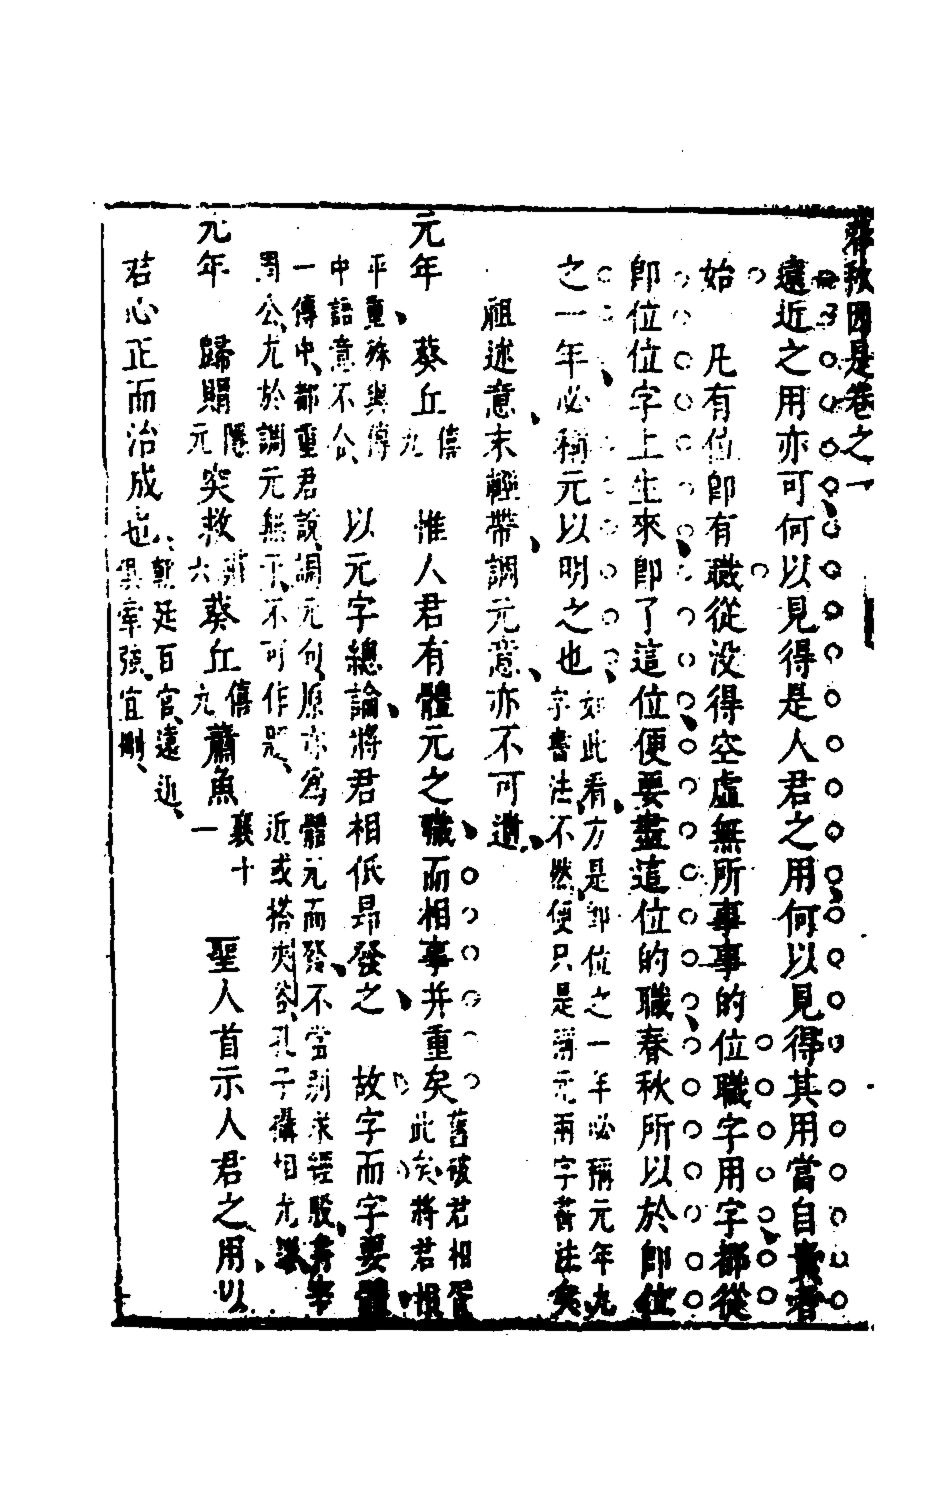 春秋因是卷之一
遠近之用亦可何以見得是人君之用何以見得其用當自貴者
始　凡有位卽有職從没得空虛無所事事的位職字用字都從
卽位位字上生來卽了這位便要盡這位的職春秋所以於卽位
之一年必稱元以明之也如此看方是卽位之一年必稱元年九
字書法不然便只是稱元兩字書法矣
祖述意末輕帶調元意亦不可遺
元年　葵丘僖九　惟人君有體元之職而相事并重矣舊破君相
此矣將君相
平重殊與傳
中語意不公　以元字總論將君相低昂發之　故字而字要體
一傳中都重君說調元句原亦爲體元而發不當別求經駁
周公尤於調元無干不可作題近或搭夾谷孔子攝相尤
元年　歸賵隱元　突救六　葵丘僖九　蕭魚襄十一　聖人首示人君之用以
若心正而治成也朝廷百官遠近
俱牽強宜刪